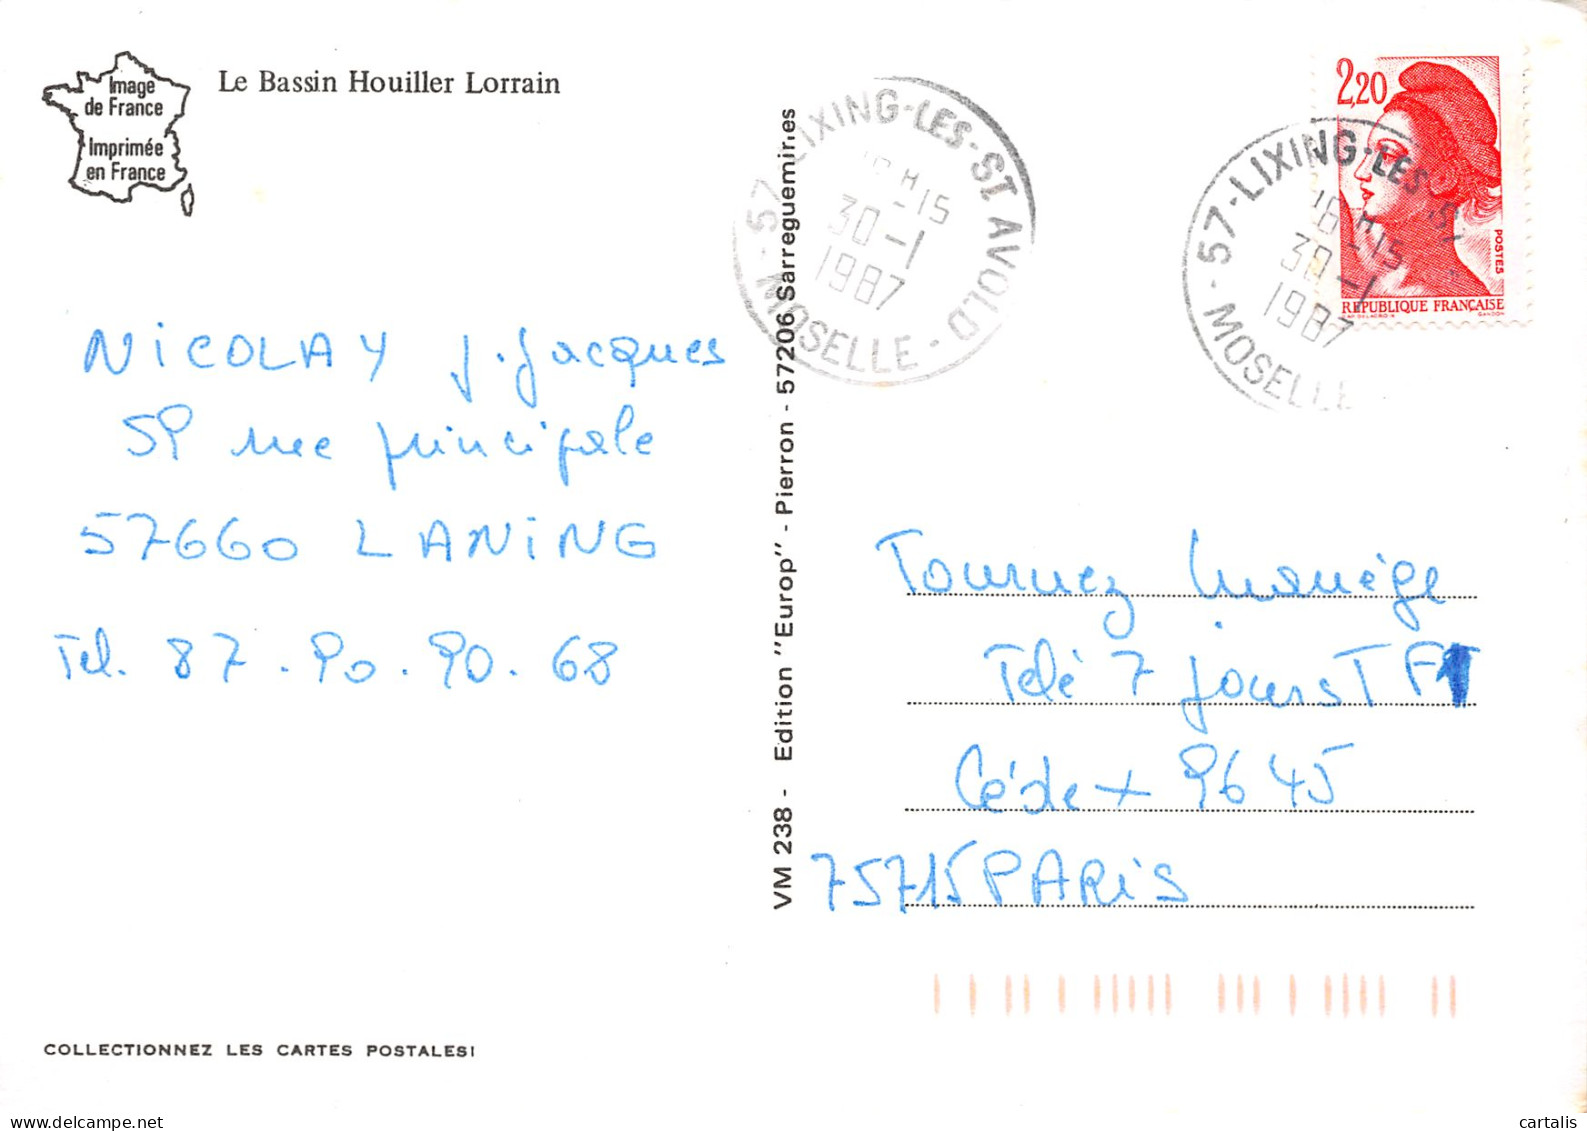 Image
de France
Imprimée
en France
Le Bassin Houiller Lorrain
57-LIXING-LES-ST AVOLD
H-15
30-1
1987
MOSELLE
2,20
POSTES
REPUBLIQUE FRANÇAISE
57-LIXING-LES-ST
16H-15
30-1
1987
MOSELLE
NiCOLAY J.Jacques
59 rue principale
57660 LANiNG
Tel. 87.90.90.68
VM 238 - Edition "Europ" - Pierron - 57206 Sarreguemines
Tournez Manège
Télé 7 jours TF1
Cédex 9645
75715 PARiS
COLLECTIONNEZ LES CARTES POSTALES!
cartalis